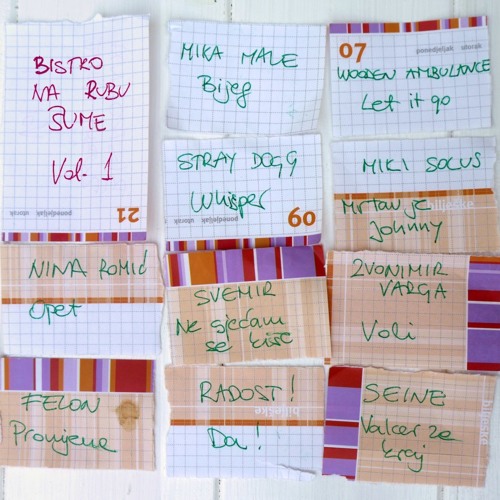 BISTRO
NA RUBU
ŠUME
Vol. 1
ponedjeljak utorak
21
MIKA MALE
Bijeg
07
ponedjeljak utorak
WOODEN AMBULANCE
Let it go
STRAY DOGG
Whisper
ponedjeljak utorak
09
MIKI SOLUS
Mrtav je
Johnny
NINA ROMIĆ
Opet
SVEMIR
Ne sjećam
se kiše
ZVONIMIR
VARGA
Voli
FELON
Promjene
RADOST!
bilješke
Da!
SEINE
bilješke
Valcer za
kraj